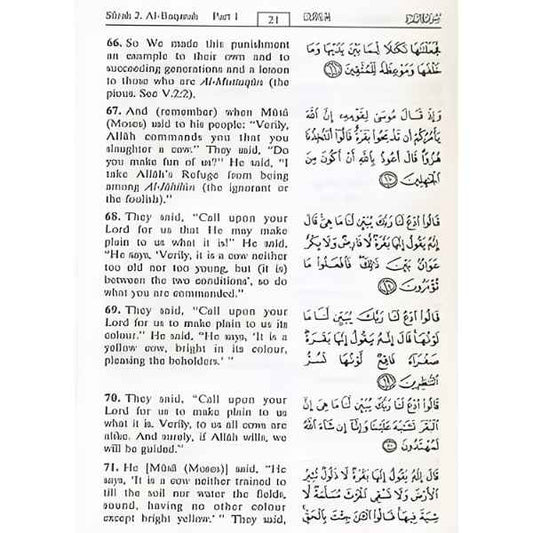 Sûrah 2. Al-Baqarah Part 1
21
66. So We made this punishment
an example to their own and to
succeeding generations and a lesson
to those who are Al-Muttaqûn (the
pious. See V.2:2).
67. And (remember) when Mûsâ
(Moses) said to his people: “Verily,
Allâh commands you that you
slaughter a cow.” They said, “Do
you make fun of us?” He said, “I
take Allâh’s Refuge from being
among Al-Jâhilûn (the ignorant or
the foolish).”
68. They said, “Call upon your
Lord for us that He may make
plain to us what it is!” He said,
“He says, ‘Verily, it is a cow neither
too old nor too young, but (it is)
between the two conditions’, so do
what you are commanded.”
69. They said, “Call upon your
Lord for us to make plain to us its
colour.” He said, “He says, ‘It is a
yellow cow, bright in its colour,
pleasing the beholders.’ ”
70. They said, “Call upon your
Lord for us to make plain to us
what it is. Verily, to us all cows are
alike. And surely, if Allâh wills, we
will be guided.”
71. He [Mûsâ (Moses)] said, “He
says, ‘It is a cow neither trained to
till the soil nor water the fields,
sound, having no other colour
except bright yellow.’ ” They said,
فَجَعَلْنَاهَا نَكَالًا لِّمَا بَيْنَ يَدَيْهَا وَمَا
خَلْفَهَا وَمَوْعِظَةً لِّلْمُتَّقِينَ
وَإِذْ قَالَ مُوسَى لِقَوْمِهِ إِنَّ اللَّهَ
يَأْمُرُكُمْ أَن تَذْبَحُوا بَقَرَةً قَالُوا أَتَتَّخِذُنَا
هُزُوًا قَالَ أَعُوذُ بِاللَّهِ أَنْ أَكُونَ مِنَ
الْجَاهِلِينَ
قَالُوا ادْعُ لَنَا رَبَّكَ يُبَيِّن لَّنَا مَا هِيَ قَالَ
إِنَّهُ يَقُولُ إِنَّهَا بَقَرَةٌ لَّا فَارِضٌ وَلَا بِكْرٌ
عَوَانٌ بَيْنَ ذَلِكَ فَافْعَلُوا مَا
تُؤْمَرُونَ
قَالُوا ادْعُ لَنَا رَبَّكَ يُبَيِّن لَّنَا مَا
لَوْنُهَا قَالَ إِنَّهُ يَقُولُ إِنَّهَا بَقَرَةٌ
صَفْرَاءُ فَاقِعٌ لَّوْنُهَا تَسُرُّ
النَّاظِرِينَ
قَالُوا ادْعُ لَنَا رَبَّكَ يُبَيِّن لَّنَا مَا هِيَ إِنَّ
الْبَقَرَ تَشَابَهَ عَلَيْنَا وَإِنَّا إِن شَاءَ اللَّهُ
لَمُهْتَدُونَ
قَالَ إِنَّهُ يَقُولُ إِنَّهَا بَقَرَةٌ لَّا ذَلُولٌ تُثِيرُ
الْأَرْضَ وَلَا تَسْقِي الْحَرْثَ مُسَلَّمَةٌ لَّا
شِيَةَ فِيهَا قَالُوا الْآنَ جِئْتَ بِالْحَقِّ